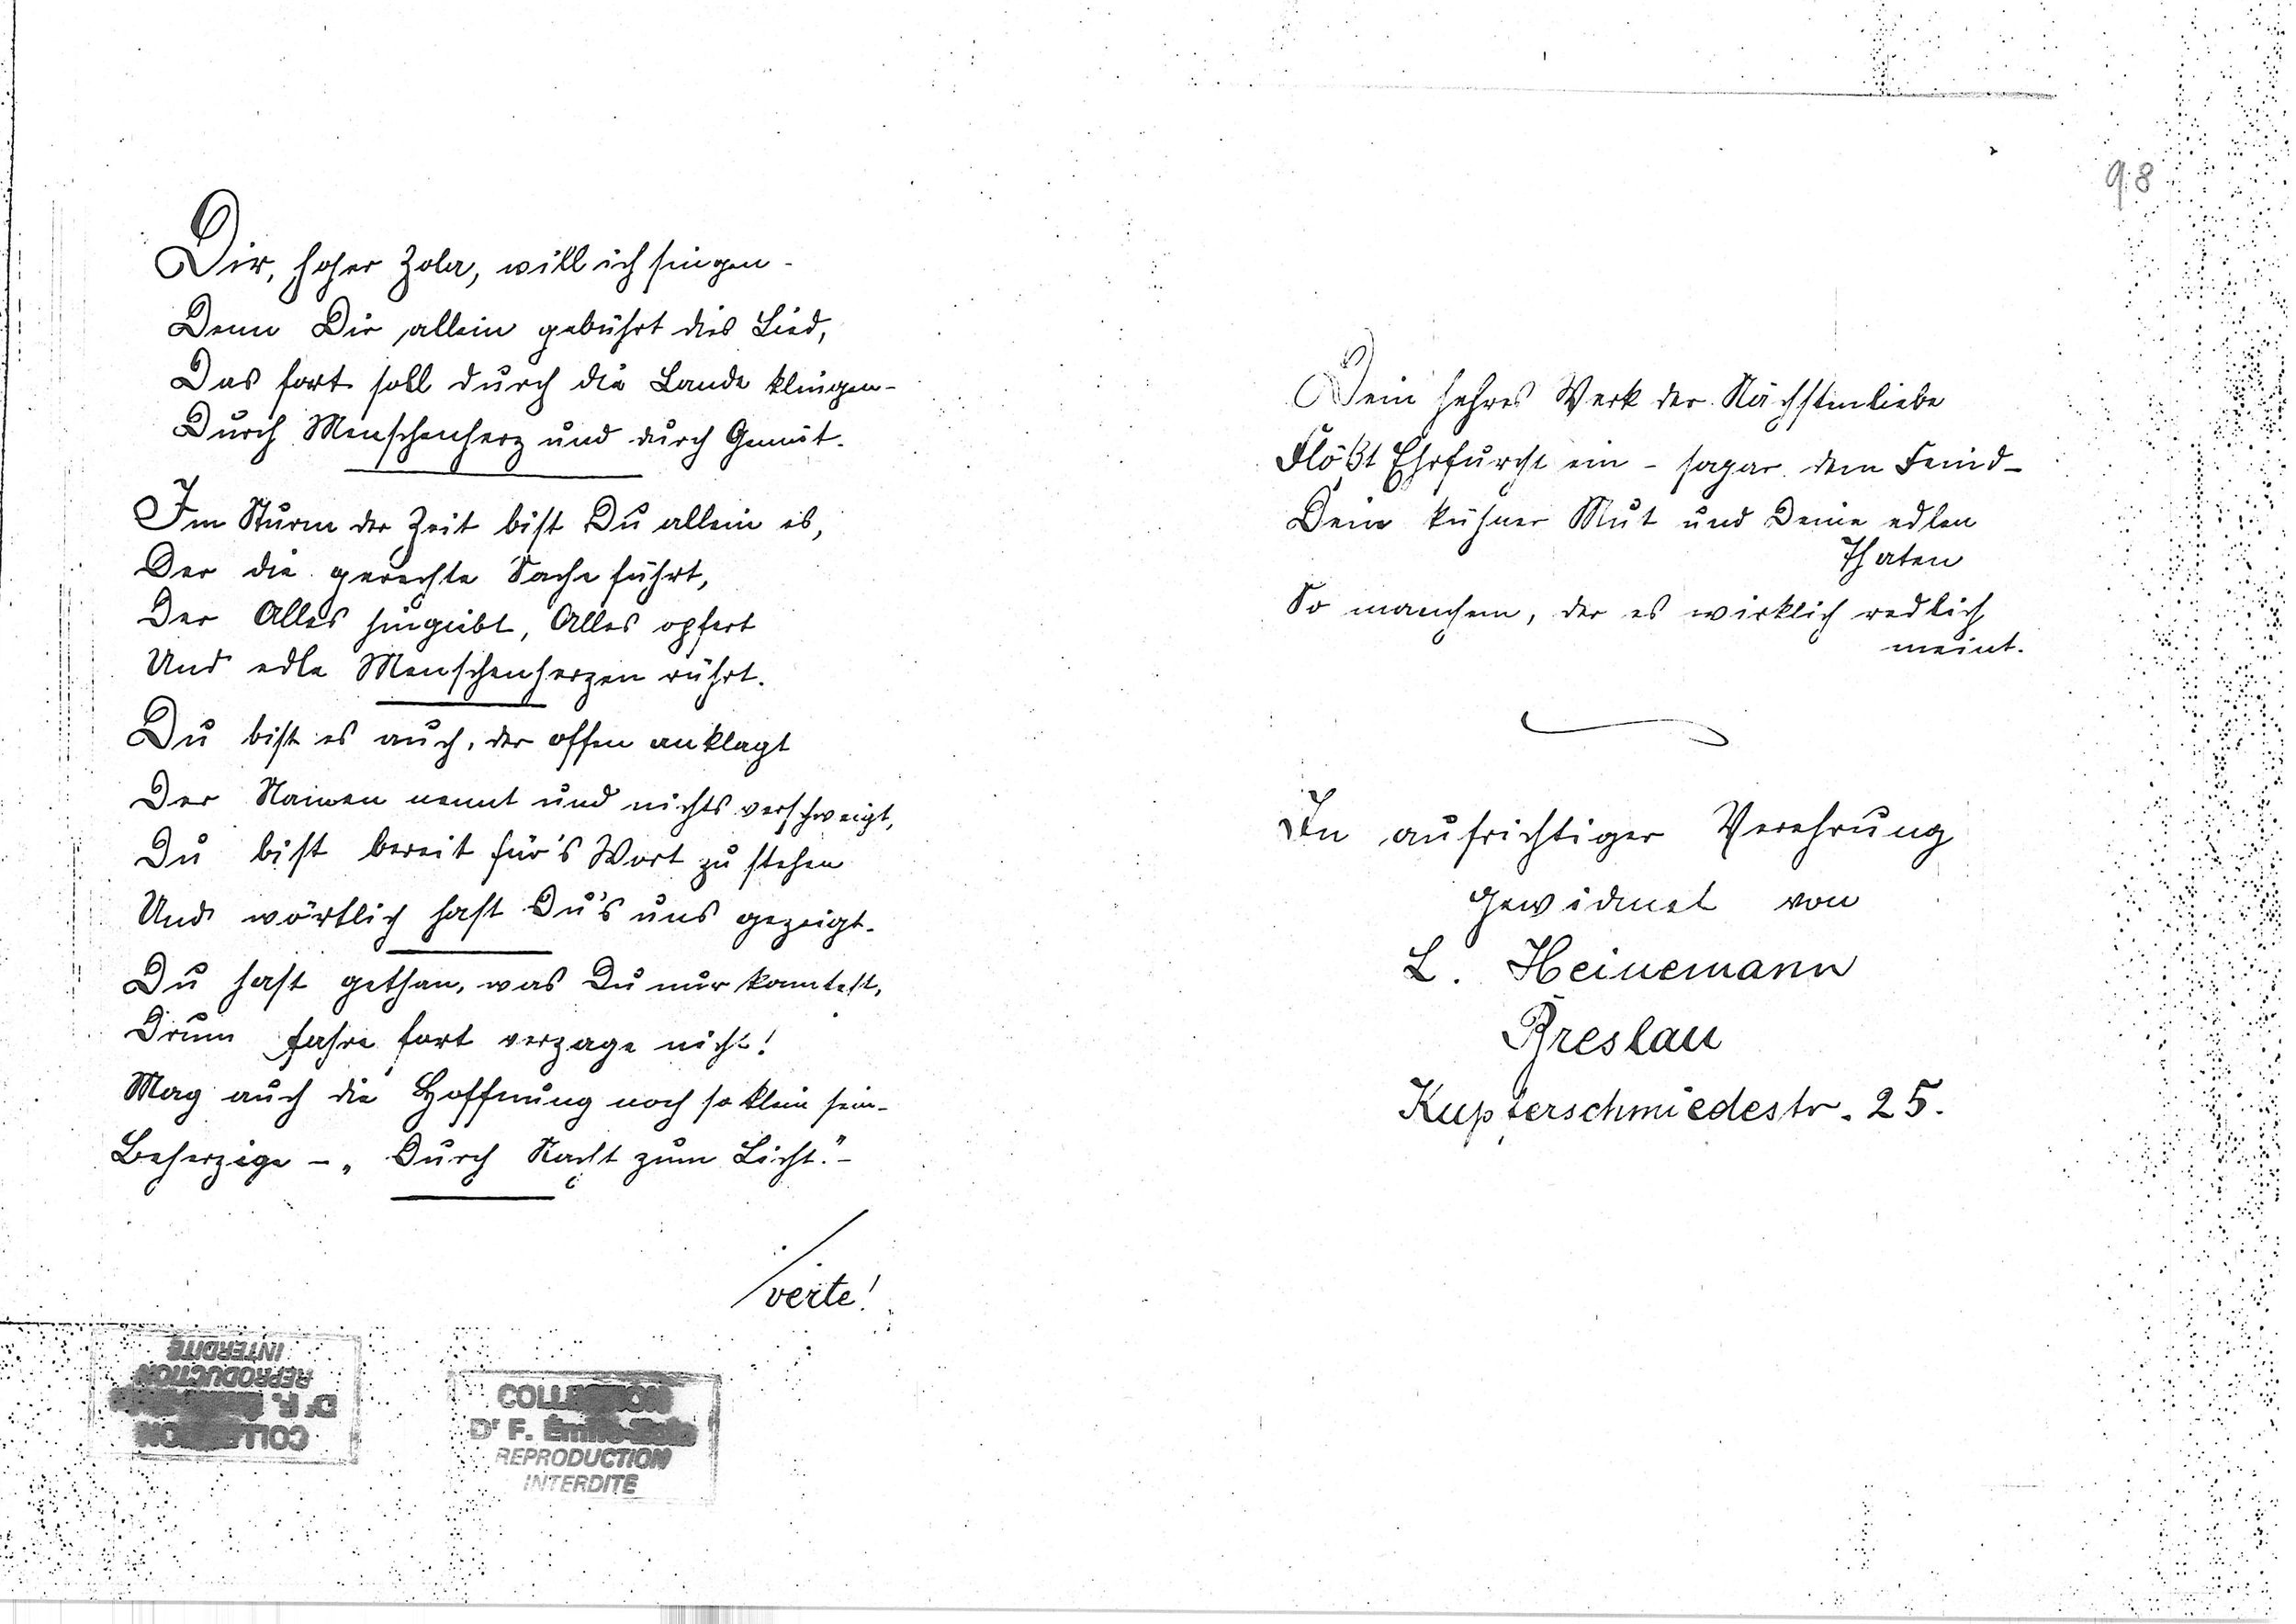 Dir, hoher Zola, will ich singen -
Denn Dir allein gebührt dies Lied,
Das fort soll durch die Lande klingen -
Durch Menschenherz und durch Gemüt.
Im Sturm der Zeit bist Du allein es,
Der die gerechte Sache führt,
Der Alles hingiebt, Alles opfert
Und edle Menschenherzen rührt.
Du bist es auch, der offen anklagt
Der Namen nennt und nichts verschweigt,
Du bist bereit für's Wort zu stehen
Und wörtlich hast Du's uns gezeigt.
Du hast gethan, was Du nur konntest,
Drum fahre fort verzage nicht!
Mag auch die Hoffnung noch so klein sein -
Beherzige - „Durch Nacht zum Licht." -
verte!
COLLECTION
Dr F. Émile-Zola
REPRODUCTION
INTERDITE
COLLECTION
Dr F. Émile-Zola
REPRODUCTION
INTERDITE
98
Dein hehres Werk der Nächstenliebe
Flößt Ehrfurcht ein - sogar dem Feind -
Dein kühner Mut und Deine edlen
Thaten
So manchem, der es wirklich redlich
meint.
In aufrichtiger Verehrung
gewidmet von
L. Heinemann
Breslau
Kupferschmiedestr. 25.